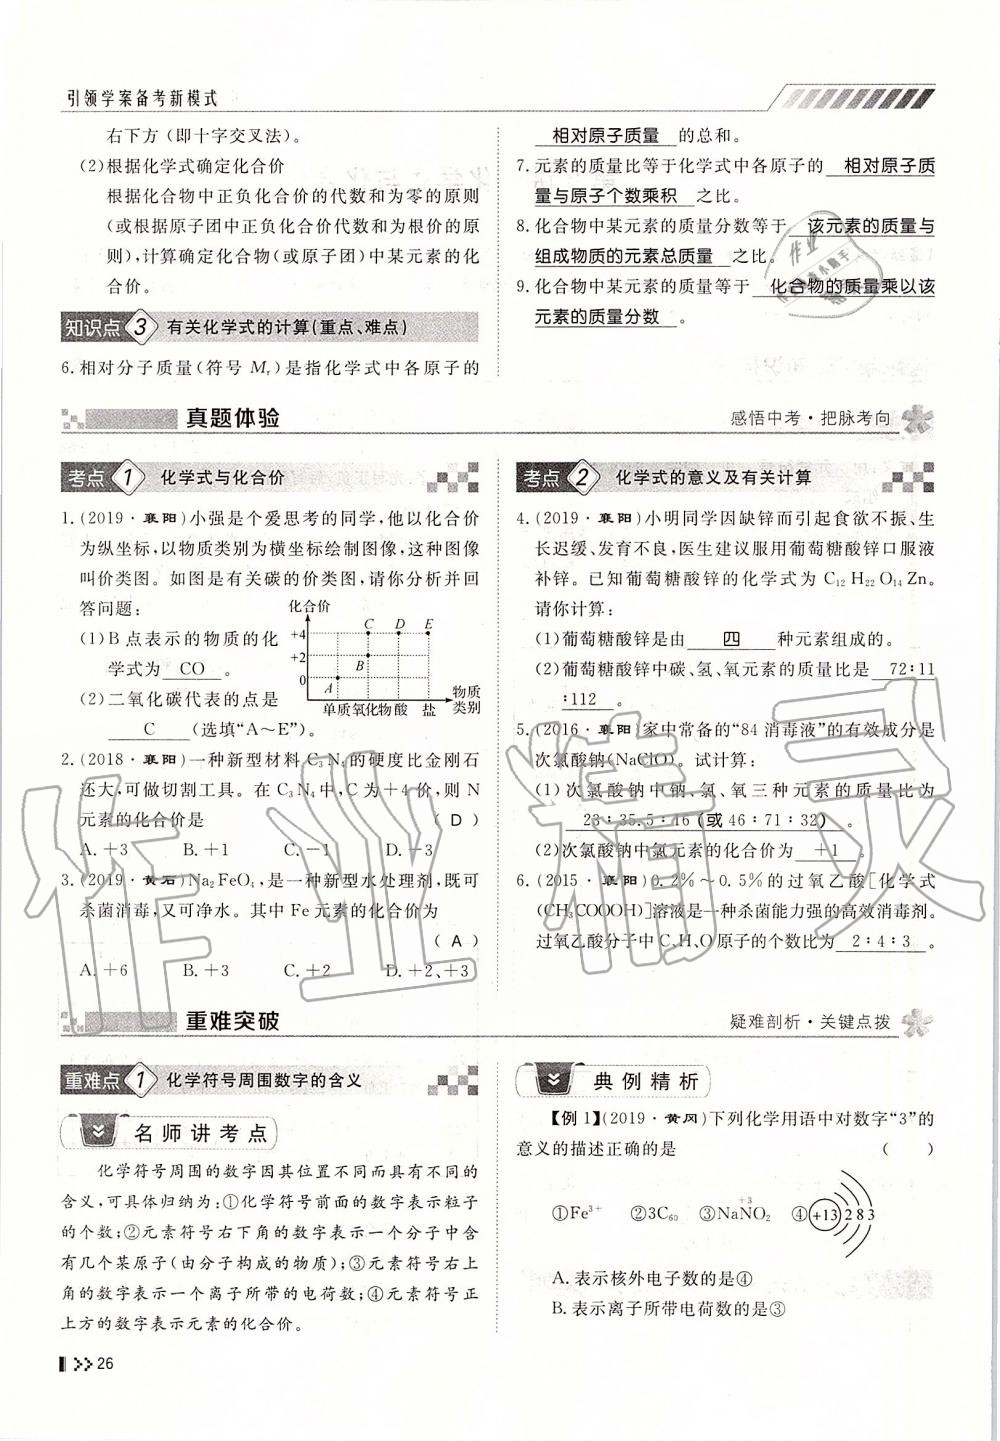 引领学案备考新模式
右下方(即十字交叉法)。
(2)根据化学式确定化合价
根据化合物中正负化合价的代数和为零的原则
(或根据原子团中正负化合价的代数和为根价的原
则),计算确定化合物(或原子团)中某元素的化
合价。
知识点 3 有关化学式的计算(重点、难点)
6.相对分子质量(符号 Mr)是指化学式中各原子的
相对原子质量 的总和。
7.元素的质量比等于化学式中各原子的 相对原子质
量与原子个数乘积 之比。
8.化合物中某元素的质量分数等于 该元素的质量与
组成物质的元素总质量 之比。
9.化合物中某元素的质量等于 化合物的质量乘以该
元素的质量分数 。
真题体验
感悟中考·把脉考向
考点 1 化学式与化合价
1.(2019·襄阳)小强是个爱思考的同学,他以化合价
为纵坐标,以物质类别为横坐标绘制图像,这种图像
叫价类图。如图是有关碳的价类图,请你分析并回
答问题:
(1)B点表示的物质的化
学式为 CO 。
(2)二氧化碳代表的点是
C (选填“A～E”)。
化合价
+4
+2
0
A
B
C D E
单质 氧化物 酸 盐
物质
类别
2.(2018·襄阳)一种新型材料C₃N₄的硬度比金刚石
还大,可做切割工具。在C₃N₄中,C为+4价,则N
元素的化合价是 ( D )
A.+3 B.+1 C.-1 D.-3
3.(2019·黄石)Na₂FeO₄是一种新型水处理剂,既可
杀菌消毒,又可净水。其中Fe元素的化合价为
( A )
A.+6 B.+3 C.+2 D.+2、+3
考点 2 化学式的意义及有关计算
4.(2019·襄阳)小明同学因缺锌而引起食欲不振、生
长迟缓、发育不良,医生建议服用葡萄糖酸锌口服液
补锌。已知葡萄糖酸锌的化学式为C₁₂H₂₂O₁₄Zn。
请你计算:
(1)葡萄糖酸锌是由 四 种元素组成的。
(2)葡萄糖酸锌中碳、氢、氧元素的质量比是 72∶11
∶112 。
5.(2016·襄阳)家中常备的“84消毒液”的有效成分是
次氯酸钠(NaClO)。试计算:
(1)次氯酸钠中钠、氯、氧三种元素的质量比为
23∶35.5∶16(或46∶71∶32) 。
(2)次氯酸钠中氯元素的化合价为 +1 。
6.(2015·襄阳)0.2%～0.5%的过氧乙酸[化学式
(CH₃COOOH)]溶液是一种杀菌能力强的高效消毒剂。
过氧乙酸分子中C、H、O原子的个数比为 2∶4∶3 。
重难突破
疑难剖析·关键点拨
重难点 1 化学符号周围数字的含义
名师讲考点
化学符号周围的数字因其位置不同而具有不同的
含义,可具体归纳为:①化学符号前面的数字表示粒子
的个数;②元素符号右下角的数字表示一个分子中含
有几个某原子(由分子构成的物质);③元素符号右上
角的数字表示一个离子所带的电荷数;④元素符号正
上方的数字表示元素的化合价。
典例精析
【例1】(2019·黄冈)下列化学用语中对数字“3”的
意义的描述正确的是 ( )
①Fe³⁺ ②3C₆₀ ③NaN(+3)O₂ ④+13 2 8 3
A.表示核外电子数的是④
B.表示离子所带电荷数的是③
26
作业精灵